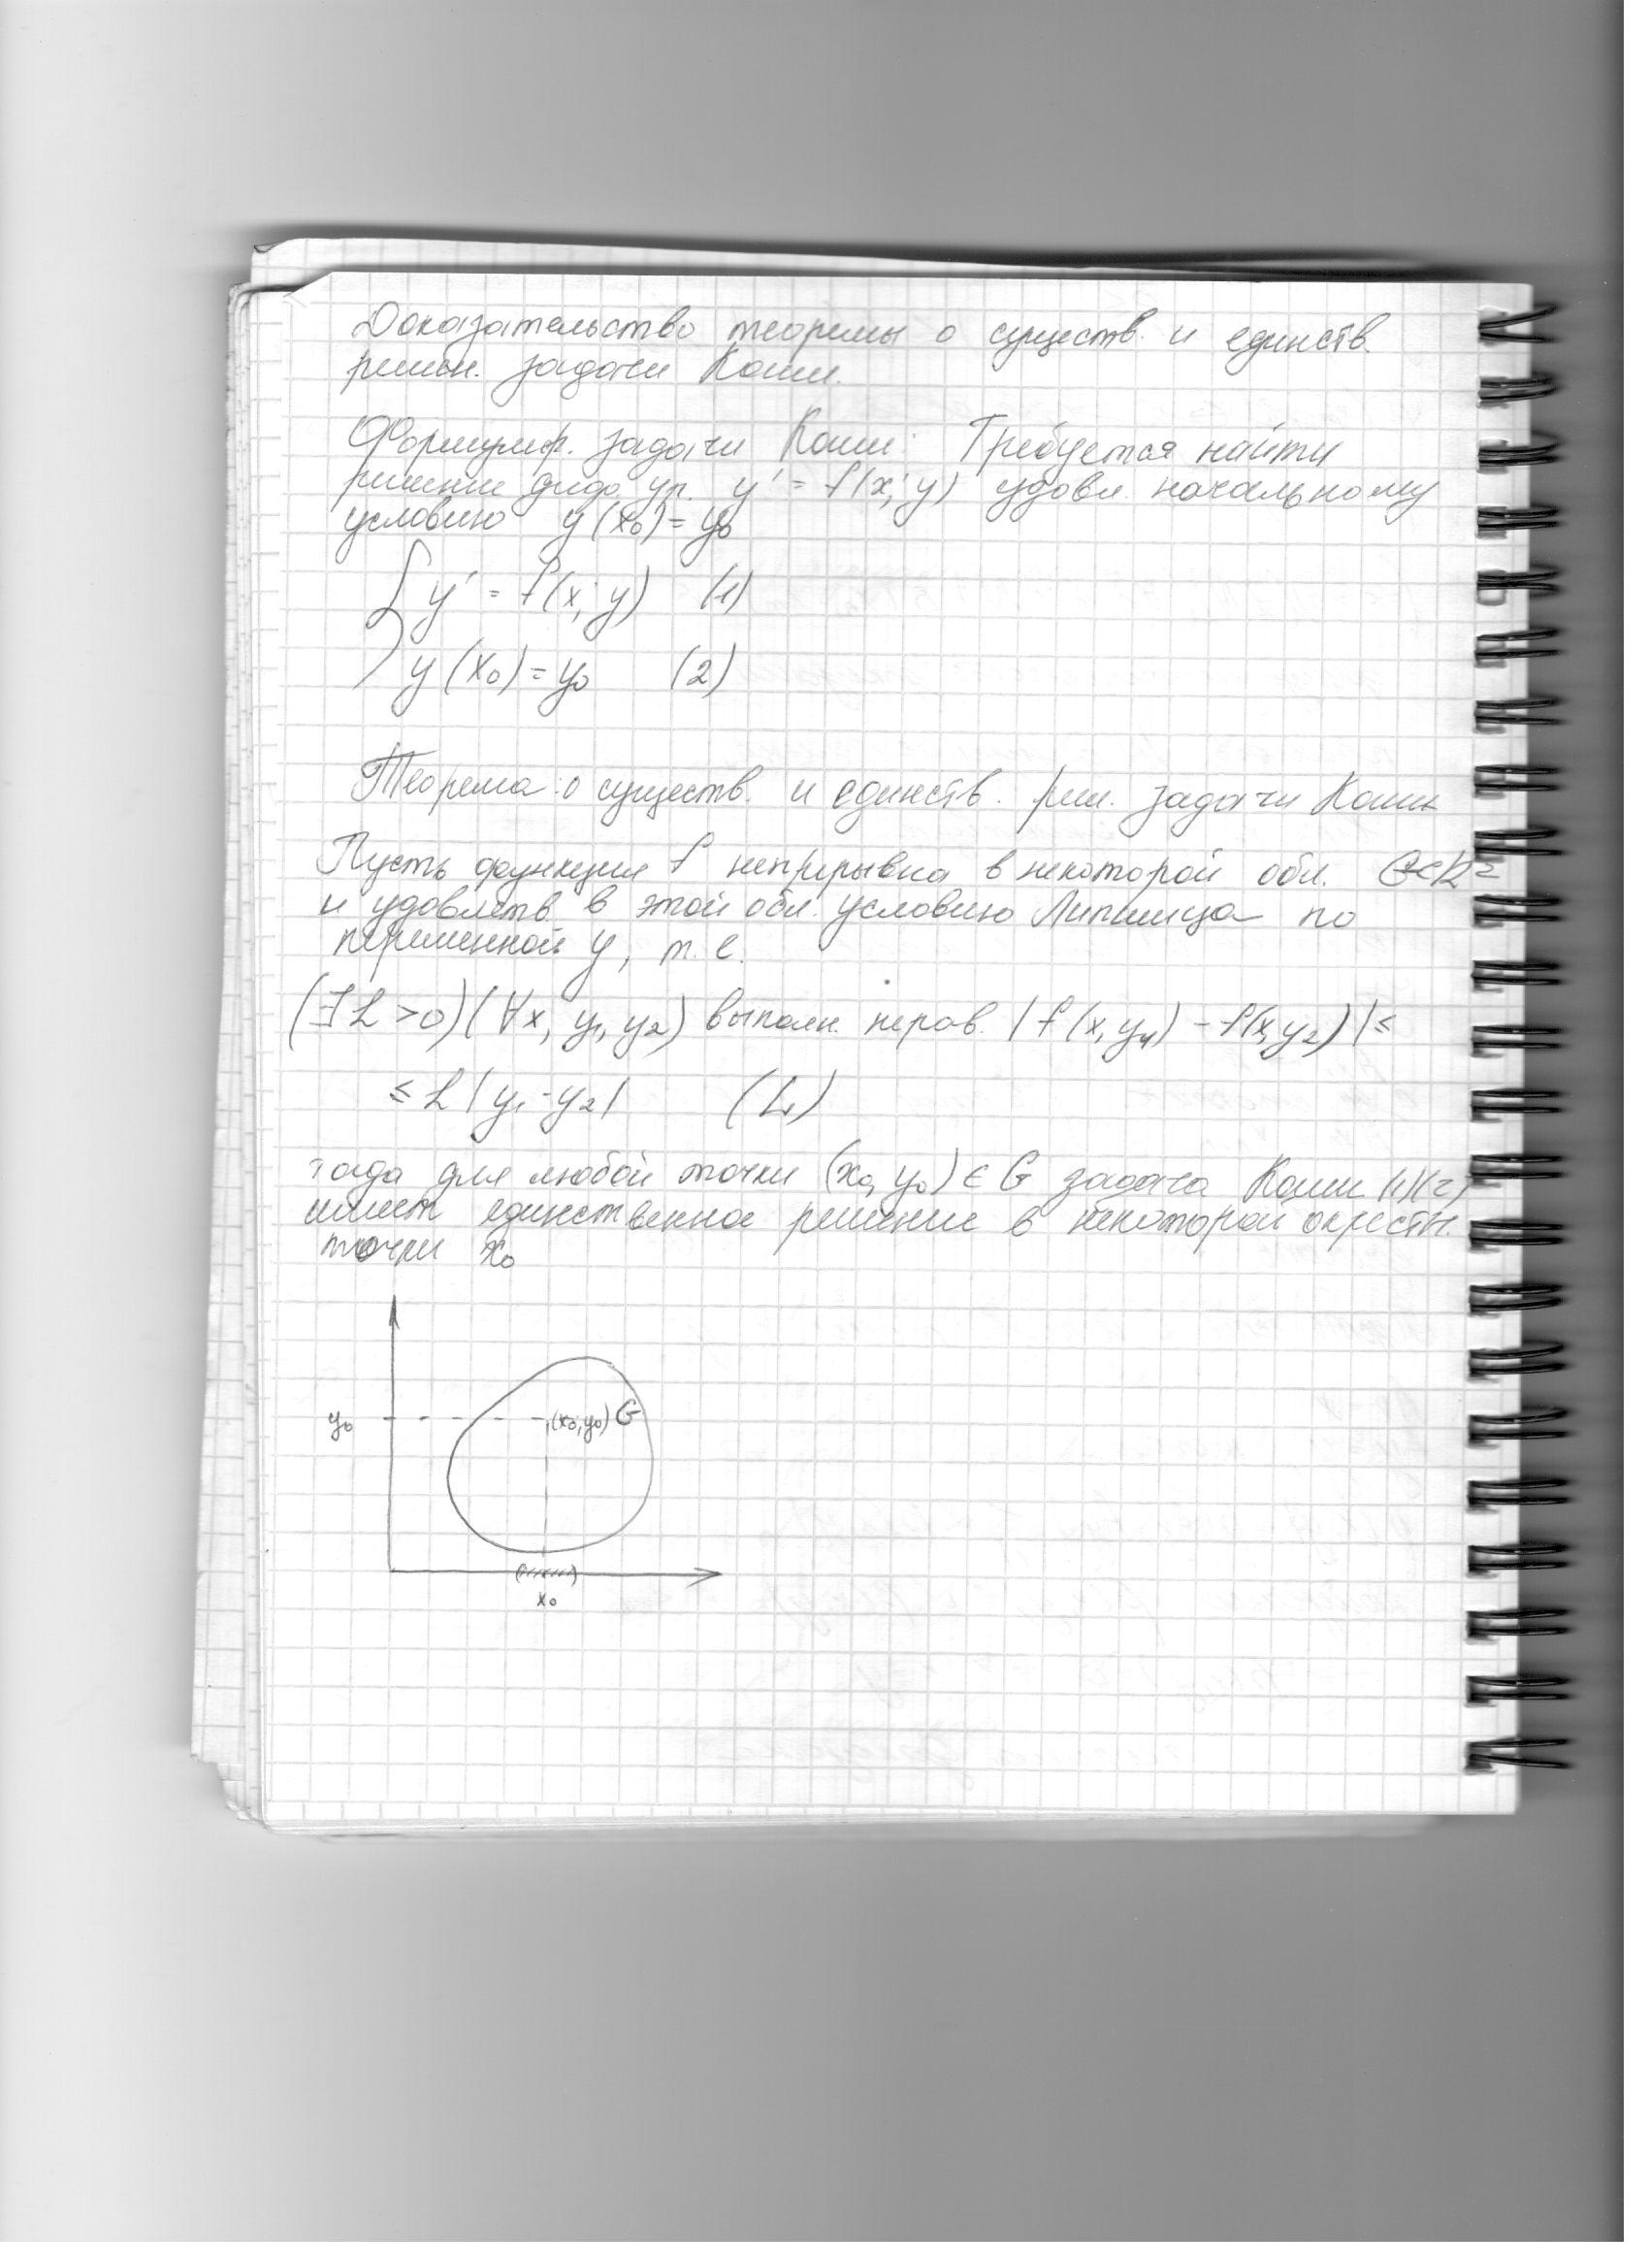 Доказательство теоремы о существ. и единств.
решен. задачи Коши.
Формулир. задачи Коши: Требуется найти
решение дифф. ур. y' = f(x; y) удовл. начальному
условию y(x₀) = y₀
{ y' = f(x; y) (1)
y(x₀) = y₀ (2)
Теорема: о существ. и единств. реш. задачи Коши
Пусть функция f непрерывна в некоторой обл. G⊂R²
и удовлетв. в этой обл. условию Липшица по
переменной y, т. е.
(∃ L > 0)(∀x, y₁, y₂) выполн. нерав. |f(x, y₁) - f(x, y₂)| ≤
≤ L |y₁ - y₂| (L)
тогда для любой точки (x₀, y₀) ∈ G задача Коши (1)(2)
имеет единственное решение в некоторой окрестн.
точки x₀
y₀ (x₀; y₀) G
x₀